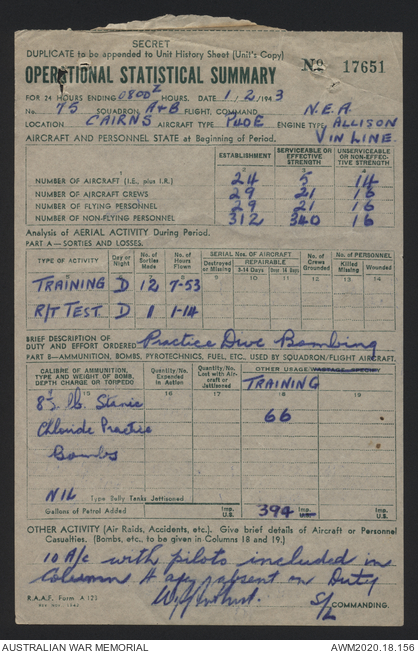 SECRET
DUPLICATE to be appended to Unit History Sheet (Unit's Copy)
OPERATIONAL STATISTICAL SUMMARY
No 17651
FOR 24 HOURS ENDING 0800Z HOURS. DATE 1/2/1943
No. 75 SQUADRON, A&B FLIGHT, COMMAND N.E.A
LOCATION CAIRNS AIRCRAFT TYPE P40E ENGINE TYPE ALLISON
V IN LINE.
AIRCRAFT AND PERSONNEL STATE at Beginning of Period.
ESTABLISHMENT SERVICEABLE OR EFFECTIVE STRENGTH UNSERVICEABLE OR NON-EFFECTIVE STRENGTH
NUMBER OF AIRCRAFT (I.E., plus I.R.) 24 5 14
NUMBER OF AIRCRAFT CREWS 29 21 16
NUMBER OF FLYING PERSONNEL 29 21 16
NUMBER OF NON-FLYING PERSONNEL 312 340 16
Analysis of AERIAL ACTIVITY During Period.
PART A—SORTIES AND LOSSES.
TYPE OF ACTIVITY Day or Night No. of Sorties Made No. of Hours Flown SERIAL Nos. OF AIRCRAFT Destroyed or Missing REPAIRABLE No. of Crews Grounded No. of PERSONNEL Killed Missing Wounded
TRAINING D 12 7-53
R/T TEST D 1 1-14
BRIEF DESCRIPTION OF DUTY AND EFFORT ORDERED Practice Dive Bombing
PART B—AMMUNITION, BOMBS, PYROTECHNICS, FUEL, ETC., USED BY SQUADRON/FLIGHT AIRCRAFT.
CALIBRE OF AMMUNITION, TYPE AND WEIGHT OF BOMB, DEPTH CHARGE OR TORPEDO Quantity/No. Expended in Action Quantity/No. Lost with Aircraft or Jettisoned OTHER USAGE WASTAGE, SPECIFY
TRAINING
15 16 17 18 19
8½ lb. Stanic 66
Chloride Practice
Bombs
NIL Type Belly Tanks Jettisoned
Gallons of Petrol Added Imp. U.S. 394 Imp. U.S. Imp. U.S.
OTHER ACTIVITY (Air Raids, Accidents, etc.). Give brief details of Aircraft or Personnel
Casualties. (Bombs, etc., to be given in Columns 18 and 19.)
10 A/c with pilots included in
Column 4 are absent on Duty
S/L COMMANDING.
R.A.A.F. Form A 125
AUSTRALIAN WAR MEMORIAL
AWM2020.18.156